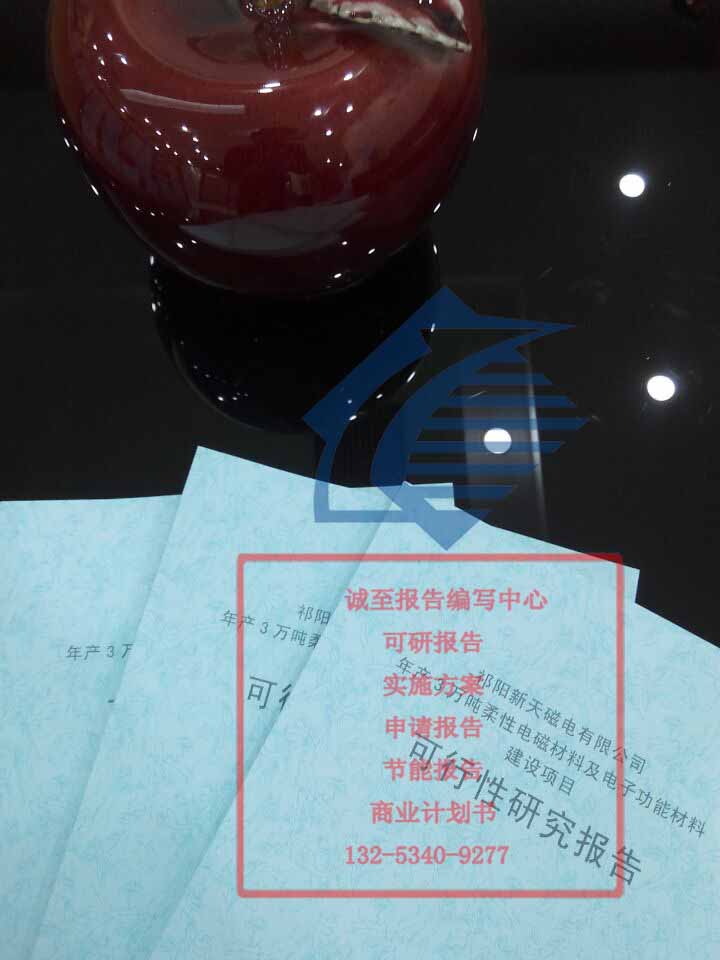 年产3万
祁阳
年产3万吨柔
可行
祁阳新天磁电有限公司
年产3万吨柔性电磁材料及电子功能材料
建设项目
可行性研究报告
诚至报告编写中心
可研报告
实施方案
申请报告
节能报告
商业计划书
132-5340-9277